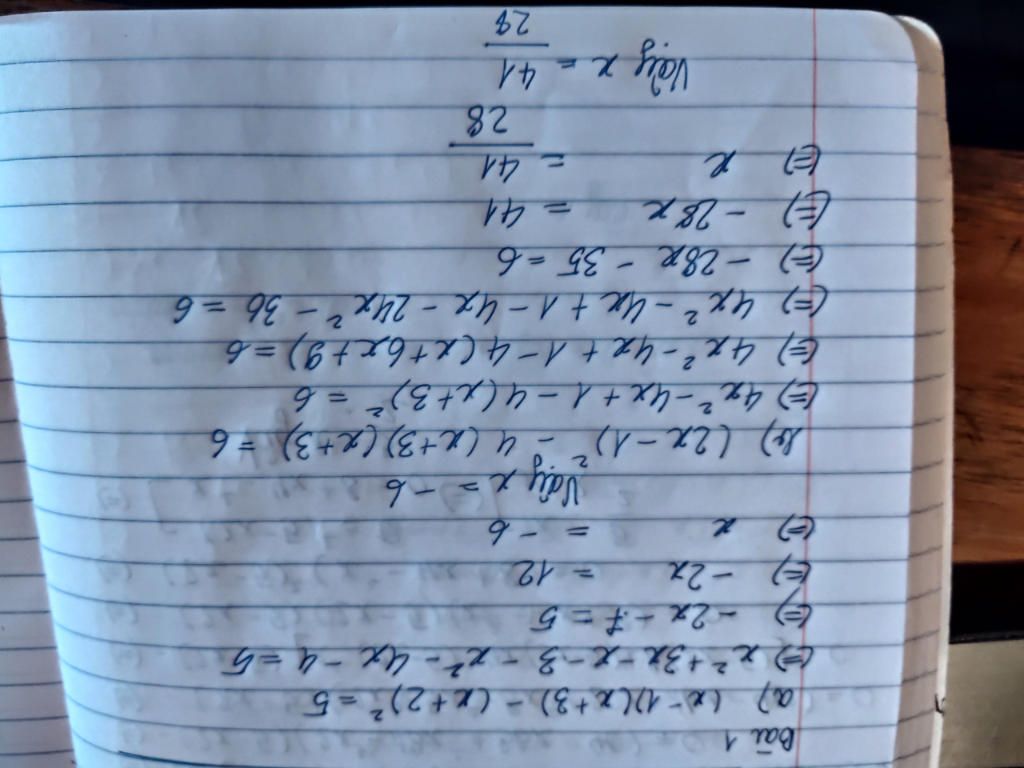 Bài 1
a) (x - 1)(x + 3) - (x + 2)² = 5
(=) x² + 3x - x - 3 - x² - 4x - 4 = 5
(=) - 2x - 7 = 5
(=) - 2x = 12
(=) x = - 6
Vậy x = - 6
b) (2x - 1)² - 4 (x + 3)(x + 3) = 6
(=) 4x² - 4x + 1 - 4 (x + 3)² = 6
(=) 4x² - 4x + 1 - 4 (x + 6x + 9) = 6
(=) 4x² - 4x + 1 - 4x - 24x² - 36 = 6
(=) - 28x - 35 = 6
(=) - 28x = 41
(=) x = 41/28
Vậy x = 41/28